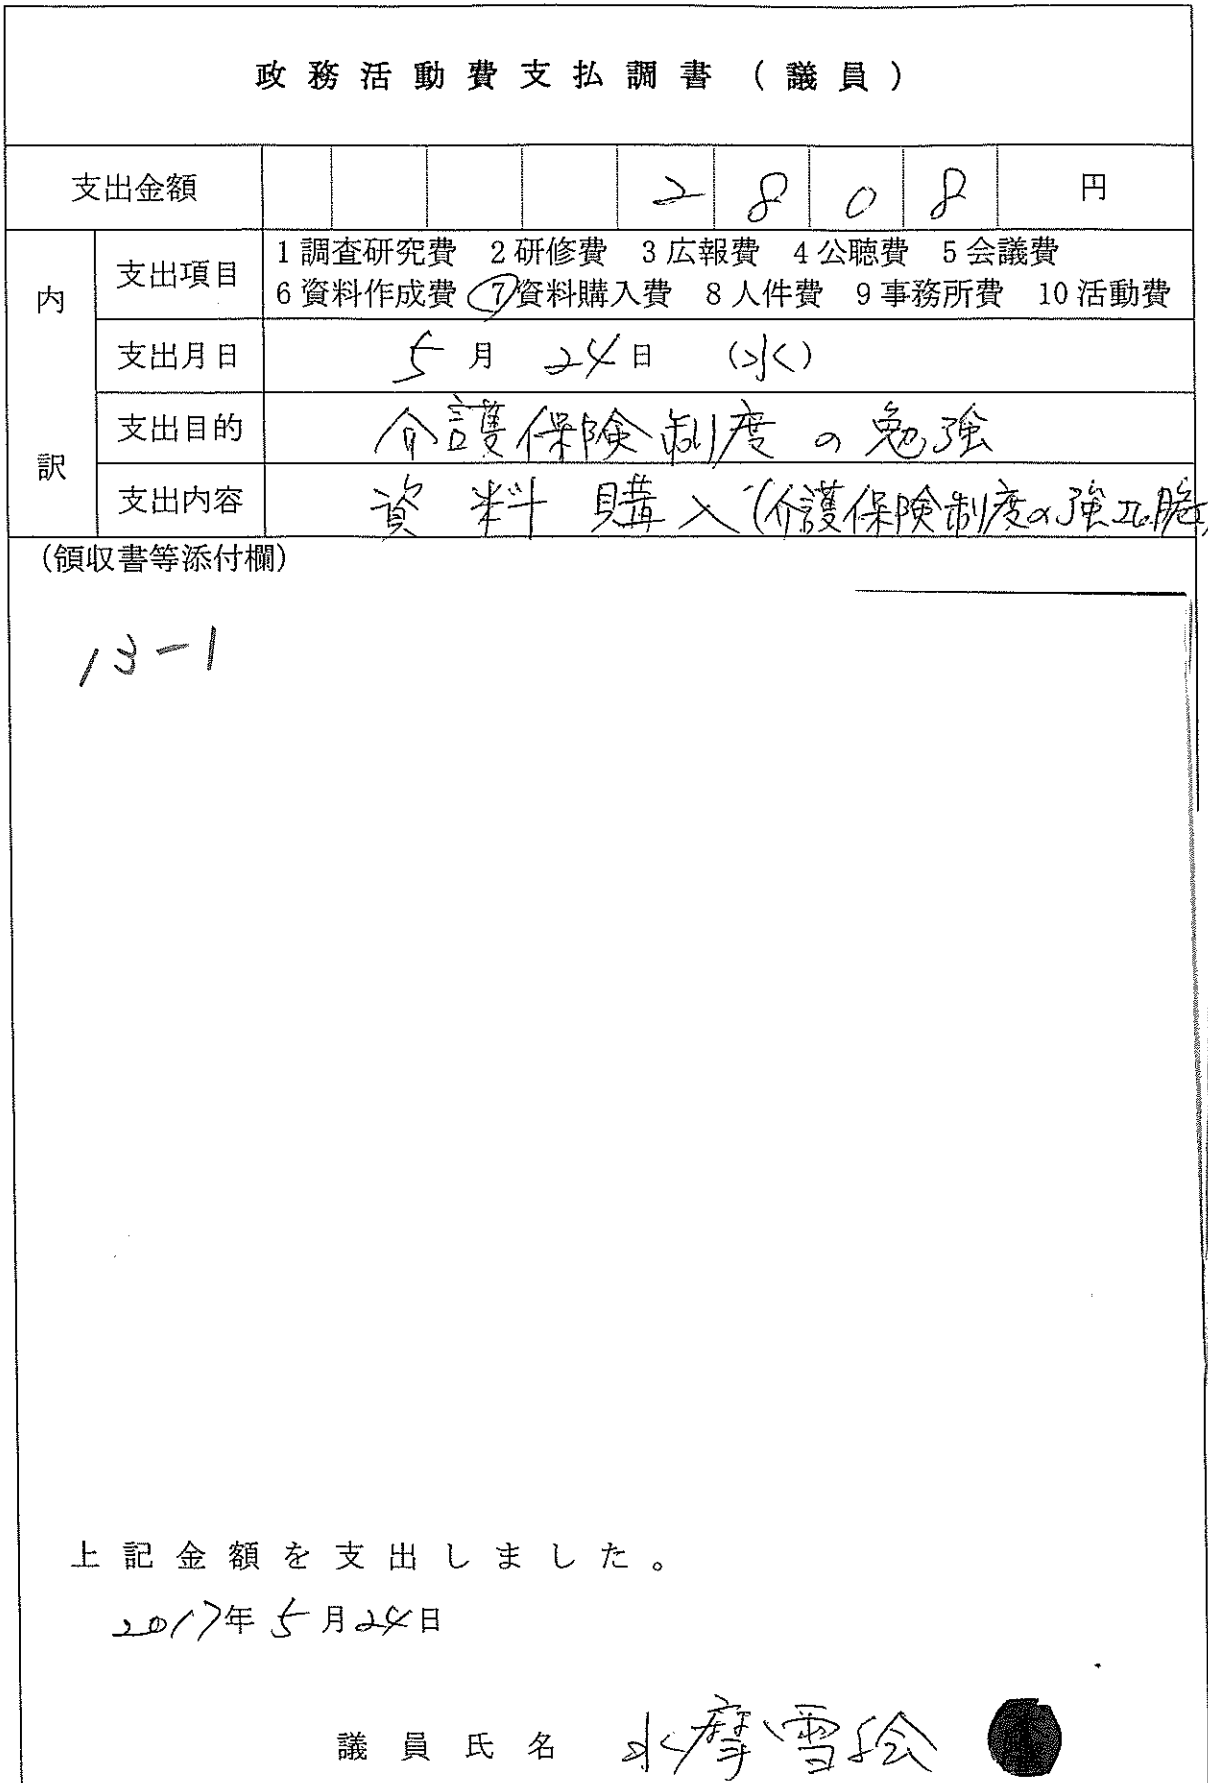 政務活動費支払調書(議員)
支出金額 2808円
内訳
支出項目 1調査研究費 2研修費 3広報費 4公聴費 5会議費
6資料作成費 7資料購入費 8人件費 9事務所費 10活動費
支出月日 5月24日 (水)
支出目的 介護保険制度の勉強
支出内容 資料購入(介護保険制度の強さと脆
(領収書等添付欄)
13-1
上記金額を支出しました。
2017年5月24日
議員氏名 水摩雪絵